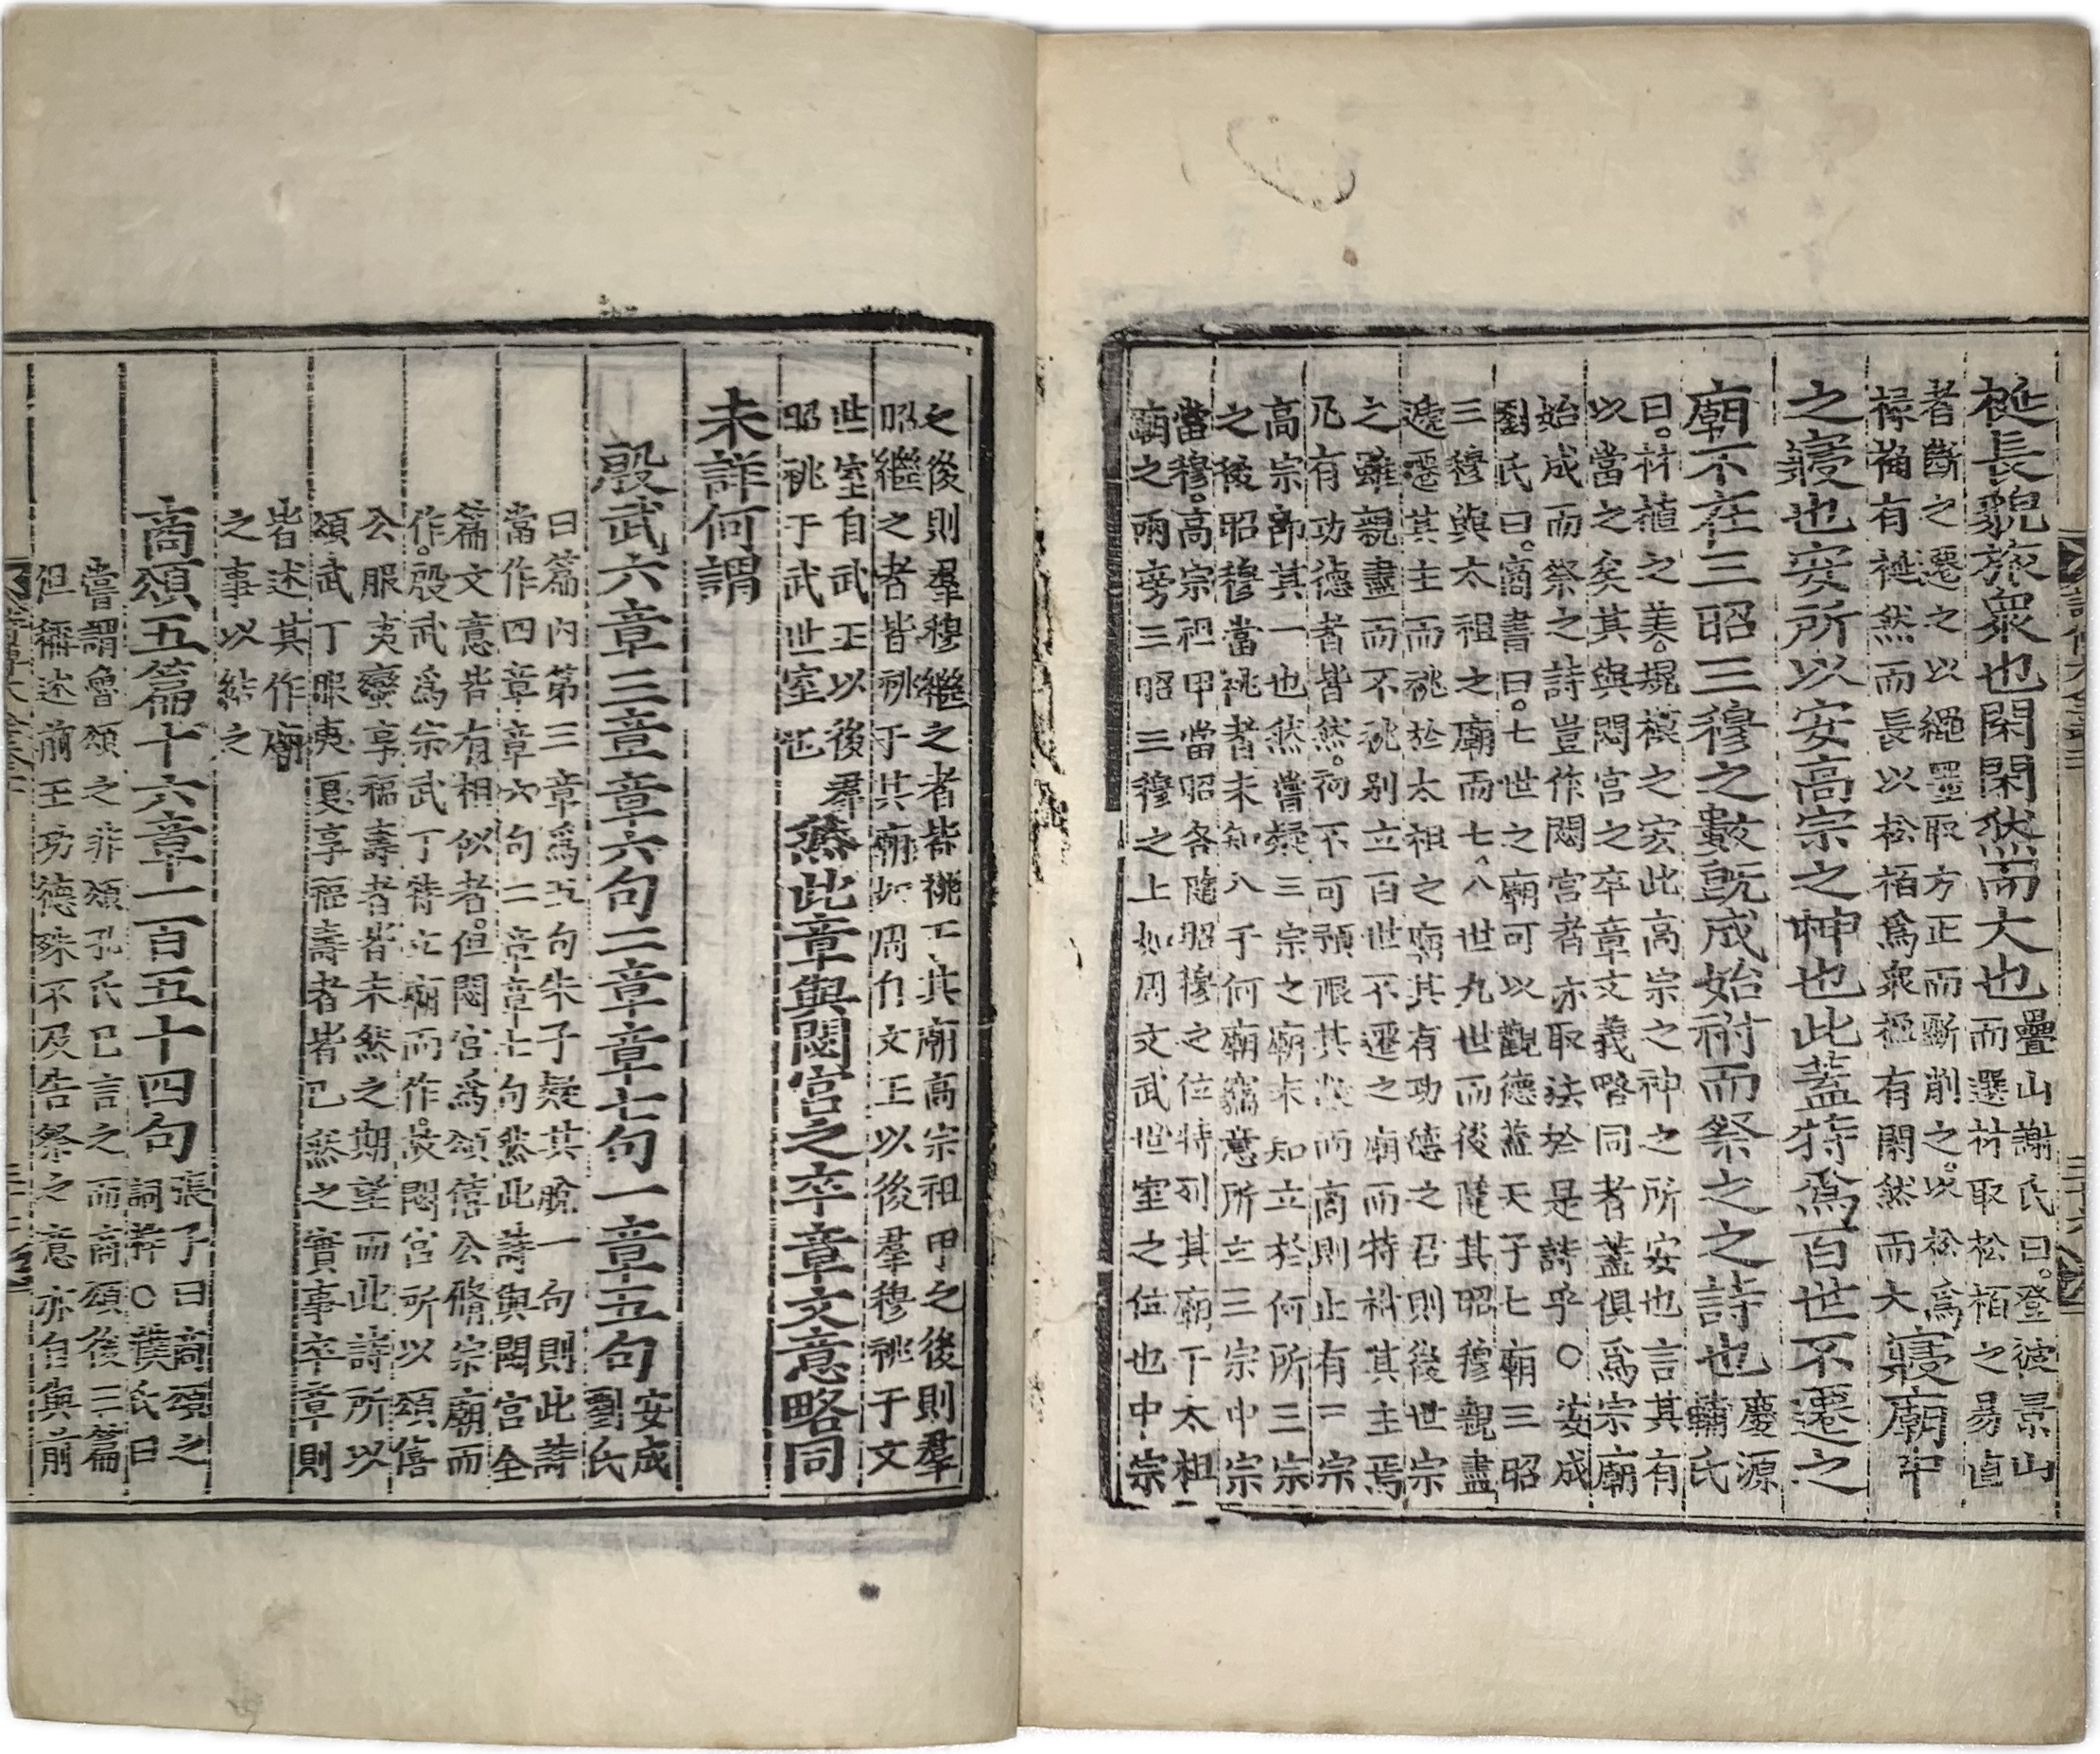 梴長貌旅衆也閑閑然而大也疊山謝氏曰登彼景山
而選材取松栢之易直
者斷之遷之以繩墨取方正而斲削之以松爲
椽桷有梴然而長以松栢爲衆楹有閑然而大寢廟中
之寢也安所以安高宗之神也此蓋特爲百世不遷之
廟不在三昭三穆之數旣成始祔而祭之之詩也慶源
輔氏
曰材植之美規模之宏此高宗之神之所安也言其有
以當之矣其與閟宮之卒章文義略同者蓋俱爲宗廟
始成而祭之詩豈作閟宮者亦取法於是詩乎○安成
劉氏曰商書曰七世之廟可以觀德蓋天子七廟三昭
三穆與太祖之廟而七八世九世而後隨其昭穆親盡
遞遷其主而祧於太祖之廟其有功德之君則後世宗
之雖親盡而不祧別立百世不遷之廟而特祔其主焉
凡有功德者皆然初不可預限其數而商則止有三宗
高宗卽其一也然嘗疑三宗之廟未知立於何所三宗
之後昭穆當祧者未知入于何廟竊意所立三宗中宗
當穆高宗祖甲當昭各隨昭穆之位特列其廟下太祖
廟之兩旁三昭三穆之上如周文武世室之位也中宗
之後則羣穆繼之者皆祧于其廟高宗祖甲之後則羣
昭繼之者皆祧于其廟如周自文王以後羣穆祧于文
世室自武王以後羣
昭祧于武世室也然此章與閟宮之卒章文意略同
未詳何謂
殷武六章三章章六句二章章七句一章五句安成
劉氏
曰篇內第三章爲五句朱子疑其脫一句則此詩
當作四章章六句二章章七句然此詩與閟宮全
篇文意皆有相似者但閟宮爲頌僖公脩宗廟而
作殷武爲宗武丁特立廟而作故閟宮所以頌僖
公服夷蠻享福壽者皆未然之期望而此詩所以
頌武丁服夷夏享福壽者皆已然之實事卒章則
皆述其作廟
之事以結之
商頌五篇十六章一百五十四句張子曰商頌之
詞粹○濮氏曰
嘗謂魯頌之非頌孔氏已言之而商頌後三篇
但稱述前王功德殊不及告祭之意亦自與前